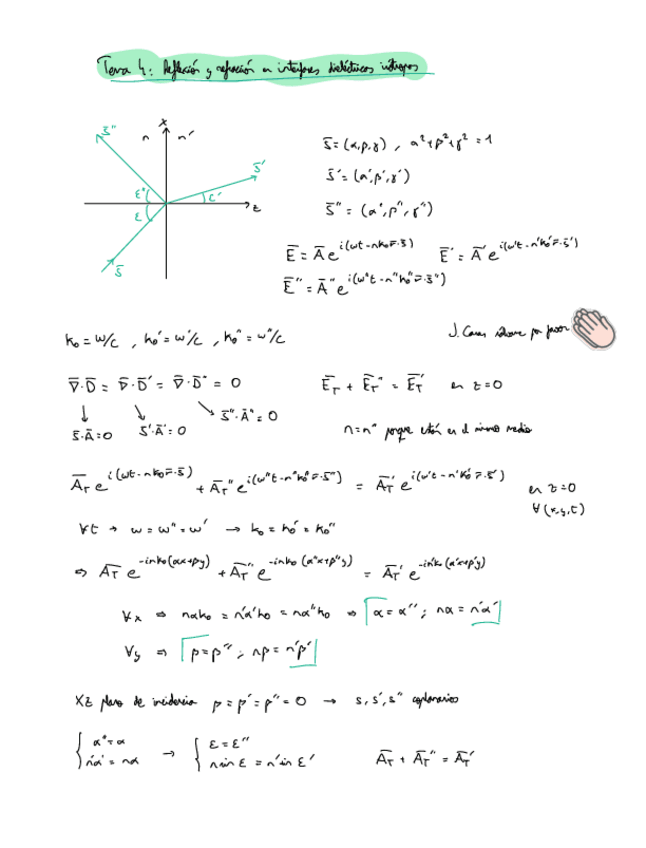 Tema 4: Reflexión y refracción en interfases dieléctricas isótropas
x
s̄'' n n'
s̄'
ε'' ε'
ε z
s̄
s̄ = (α, β, γ) , α² + β² + γ² = 1
s̄' = (α', β', γ')
s̄'' = (α'', β'', γ'')
Ē = Ā e^{i(ωt - nk₀r̄·s̄)} Ē' = Ā' e^{i(ω't - n'k₀'r̄·s̄')}
Ē'' = Ā'' e^{i(ω''t - n''k₀''r̄·s̄'')}
k₀ = ω/c , k₀' = ω'/c , k₀'' = ω''/c
por favor
∇̄·D̄ = ∇̄·D̄' = ∇̄·D̄'' = 0 Ē_T + Ē_T'' = Ē_T' en z=0
↓ ↘ ↘ s̄''·Ā'' = 0
s̄·Ā=0 s̄'·Ā' = 0 n = n'' porque están en el mismo medio
Ā_T e^{i(ωt - nk₀r̄·s̄)} + Ā_T'' e^{i(ω''t - n''k₀''r̄·s̄'')} = Ā_T' e^{i(ω't - n'k₀'r̄·s̄')} en z=0
∀(x,y,t)
∀t → ω = ω'' = ω' → k₀ = k₀' = k₀''
⇒ Ā_T e^{-ink₀(αx+βy)} + Ā_T'' e^{-ink₀(α''x+β''y)} = Ā_T' e^{-in'k₀(α'x+β'y)}
∀x ⇒ nαk₀ = n'α'k₀ = nα''k₀ ⇒ α = α'' ; nα = n'α'
∀y ⇒ β = β'' ; nβ = n'β'
XZ plano de incidencia β = β' = β'' = 0 → s, s', s'' coplanarios
{ α'' = α → { ε = ε''
n'α' = nα n sin ε = n' sin ε' Ā_T + Ā_T'' = Ā_T'